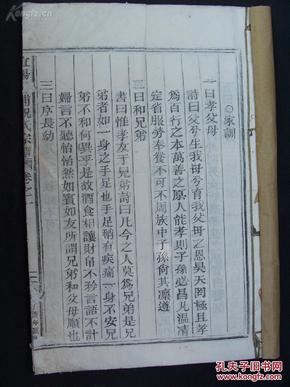 ○家訓
一曰孝父母
詩曰父兮生我母兮育我父母之恩昊天罔極且孝
為百行之本萬善之原人能孝則子孫必昌凡溫凊
定省服勞奉養不可不周族中子孫尚其凜遵
二曰和兄弟
書曰惟孝友于兄弟詩曰凡今之人莫爲兄弟是兄
弟者如一身之手足也手足稍有痛一身不安兄
弟不和何異乎是故酒食相讓財帛不言語不計
婦言不聽怡怡然如賓如友所謂兄弟和父母順也
三曰序長幼
宜陽 浦況氏宗譜卷之一